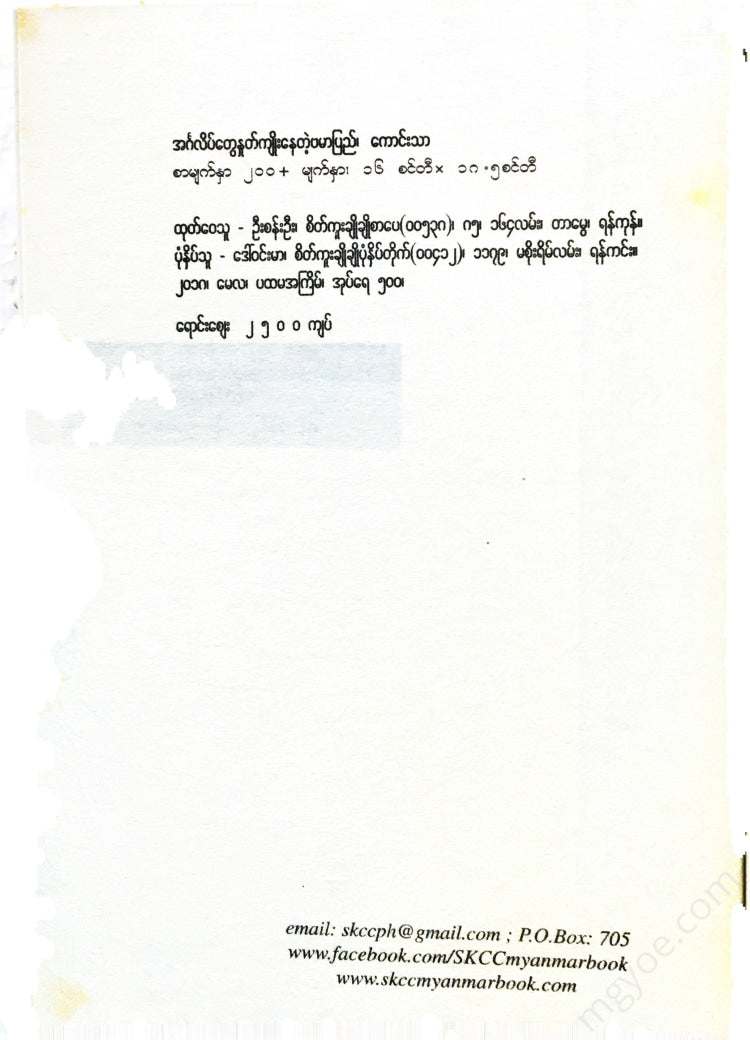 အင်္ဂလိပ်တွေနှုတ်ကျိုးနေတဲ့ဗမာပြည်၊ ကောင်းသာ
စာမျက်နှာ ၂၀၀+ မျက်နှာ၊ ၁၆ စင်တီ× ၁ဂ·၅စင်တီ
ထုတ်ဝေသူ - ဦးစန်းဦး၊ စိတ်ကူးချိုချိုစာပေ(၀၀၅၃ဂ)၊ ဂ၅၊ ၁၆၄လမ်း၊ တာမွေ၊ ရန်ကုန်။
ပုံနှိပ်သူ - ဒေါ်ဝင်းမာ၊ စိတ်ကူးချိုချိုပုံနှိပ်တိုက်(၀၀၄၁၂)၊ ၁၁၇၉၊ မစိုးရိမ်လမ်း၊ ရန်ကင်း။
၂၀၁ဂ၊ မေလ၊ ပထမအကြိမ်၊ အုပ်ရေ ၅၀၀၊
ရောင်းဈေး ၂ ၅ ၀ ၀ ကျပ်
email: skccph@gmail.com ; P.O.Box: 705
www.facebook.com/SKCCmyanmarbook
www.skccmyanmarbook.com
mgyoe.com